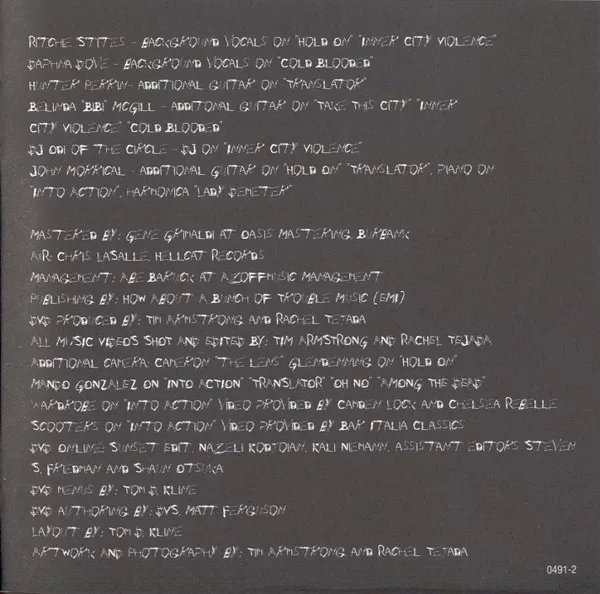 RITCHE STITES - BACKGROUND VOCALS ON "HOLD ON" "INNER CITY VIOLENCE"
DAPHNA DOVE - BACKGROUND VOCALS ON "COLD BLOODED"
HUNTER PERRIN - ADDITIONAL GUITAR ON "TRANSLATOR"
BELINDA "BIBI" MCGILL - ADDITONAL GUITAR ON "TAKE THIS CITY" "INNER
CITY VIOLENCE" "COLD BLOODED"
DJ ODI OF THE CIRCLE - DJ ON "INNER CITY VIOLENCE"
JOHN MORRICAL - ADDITIONAL GUITAR ON "HOLD ON" "TRANSLATOR", PIANO ON
"INTO ACTION", HARMONICA "LADY DEMETER"
MASTERED BY: GENE GRIMALDI AT OASIS MASTERING, BURBANK
A&R: CHRIS LASALLE, HELLCAT RECORDS
MANAGEMENT: ABE BARUCK AT AZOFFMUSIC MANAGEMENT
PUBLISHING BY: HOW ABOUT A BUNCH OF TROUBLE MUSIC (EMI)
DVD PRODUCED BY: TIM ARMSTRONG AND RACHEL TEJADA
ALL MUSIC VIDEOS SHOT AND EDITED BY: TIM ARMSTRONG AND RACHEL TEJADA
ADDITIONAL CAMERA: CAMERON "THE LENS" GLENDENNING ON "HOLD ON"
MANDO GONZALEZ ON "INTO ACTION" "TRANSLATOR" "OH NO" "AMONG THE DEAD"
WARDROBE ON "INTO ACTION" VIDEO PROVIDED BY CAMDEN LOCK AND CHELSEA REBELLE
SCOOTERS ON "INTO ACTION" VIDEO PROVIDED BY BAR ITALIA CLASSICS
DVD ONLINE: SUNSET EDIT, NAZELI KODJOIAN, KALI NIEMANN, ASSISTANT EDITORS STEVEN
S. FRIEDMAN AND SHAUN OTSUKA
DVD MENUS BY: TOM D. KLINE
DVD AUTHORING BY: DVS, MATT FERGUSON
LAYOUT BY: TOM D. KLINE
ARTWORK AND PHOTOGRAPHY BY: TIM ARMSTRONG AND RACHEL TEJADA
0491-2